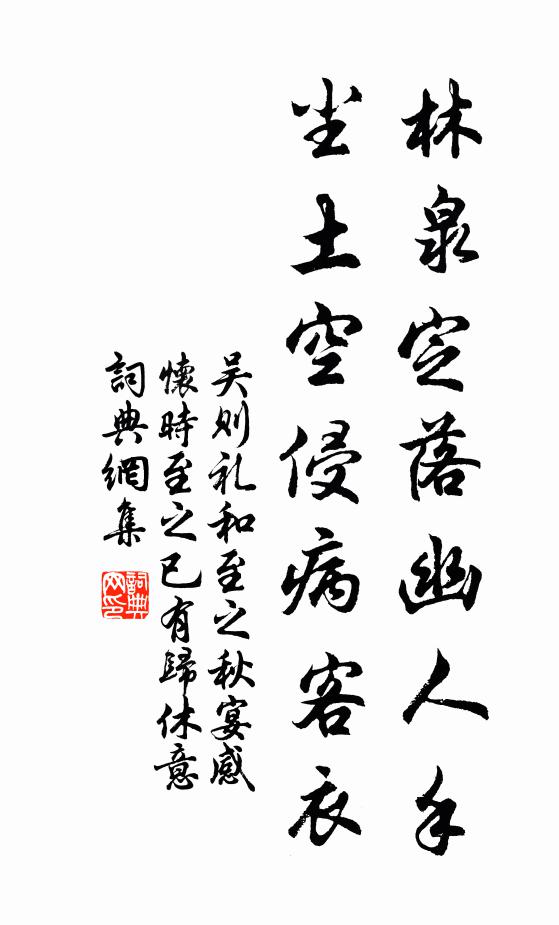 林泉定落幽人手
尘土空侵病客衣
吴则礼和至之秋宴感
懷時至之已有歸休意
詞典網集
詞典網印